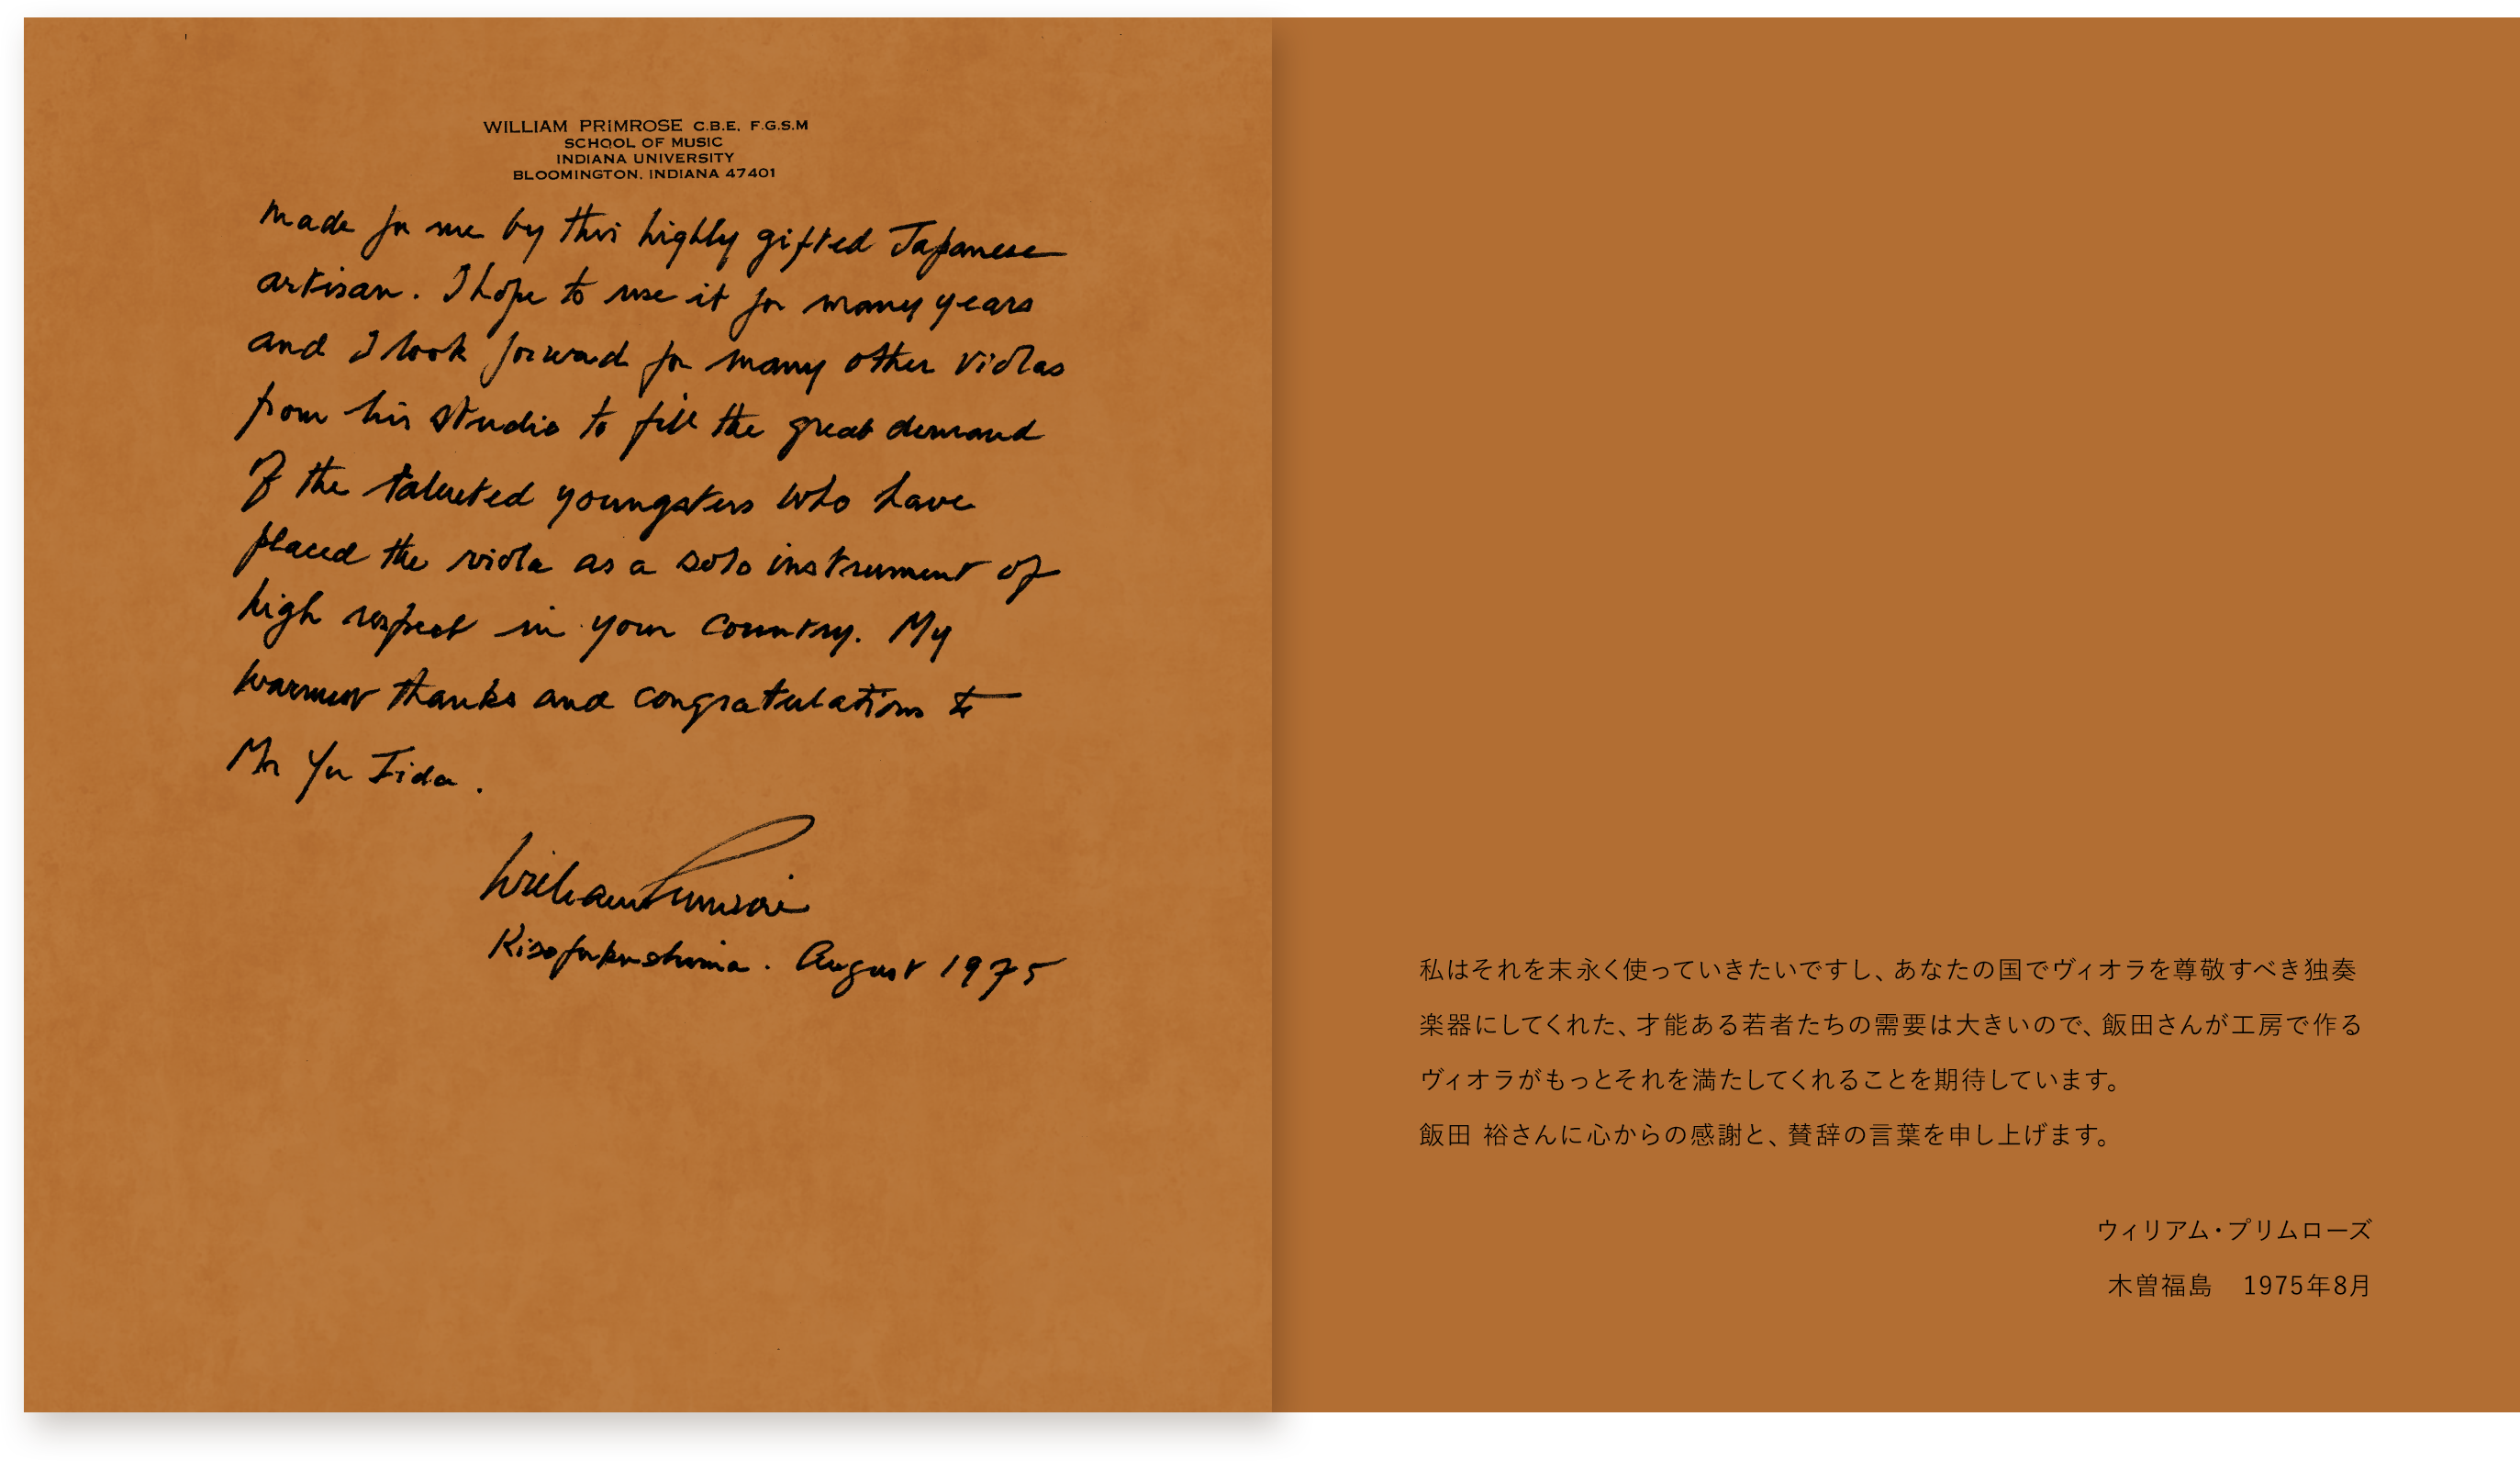 WILLIAM PRIMROSE C.B.E. F.G.S.M
SCHOOL OF MUSIC
INDIANA UNIVERSITY
BLOOMINGTON, INDIANA 47401
made for me by this highly gifted Japanese
artisan. I hope to use it for many years
and I look forward for many other violas
from his studio to fill the great demand
of the talented youngsters who have
placed the viola as a solo instrument of
high respect in your country. My
warmest thanks and congratulations to
Mr Yu Iida.
William Primrose
Kisofukushima. August 1975
私はそれを末永く使っていきたいですし、あなたの国でヴィオラを尊敬すべき独奏
楽器にしてくれた、才能ある若者たちの需要は大きいので、飯田さんが工房で作る
ヴィオラがもっとそれを満たしてくれることを期待しています。
飯田 裕さんに心からの感謝と、賛辞の言葉を申し上げます。
ウィリアム・プリムローズ
木曽福島　1975年8月